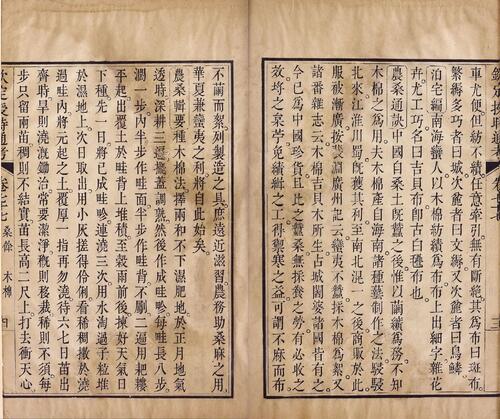 車尤便但紡不績任意牽引無有斷絕其爲布曰斑布
繁縟多巧者曰城次麁者曰文縟又次麁者曰烏驎
泊宅編南海蠻人以木棉紡績爲布布上出細字雜花
卉尤工巧名曰吉貝布卽古白㲲布也
農桑通訣中國自桑土旣蠶之後惟以繭纊爲務不知
木棉之爲用夫木棉產自海南諸種藝制作之法駸駸
北來江淮川蜀旣獲其利至南北混一之後商販於此
服被漸廣按裴淵廣州記云蠻夷不蠶採木棉爲絮又
諸番雜志云木棉吉貝木所生占城闍婆諸國皆有之
今已爲中國珍貨且比之蠶桑無採養之勞有必收之
效埒之枲苧免緝績之工得禦寒之益可謂不麻而布
不繭而絮列製造之具庶遠近滋習農務助桑麻之用
華夏兼蠻夷之利將自此始矣
農桑輯要種木棉法擇兩和不下濕肥地於正月地氣
透時深耕三遍擺蓋調熟然後作成畦畛每畦長八步
濶一步內半步作畦面半步作畦背㔉二遍用耙耬
平起出覆土於畦背上堆積至穀雨前後揀好天氣日
下種先一日將已成畦畛連澆三次用水淘過子粒堆
於濕地上次日取出用小灰搓得伶俐看稀稠撒於澆
過畦內將元起之土覆厚一指再勿澆待六七日苗出
齊時旱則澆漑鋤治常要潔淨穊則移栽稀則不須每
步只留兩苗稠則不結實苗長高二尺上打去衝天心
欽定授時通考 卷七七 桑餘 木棉